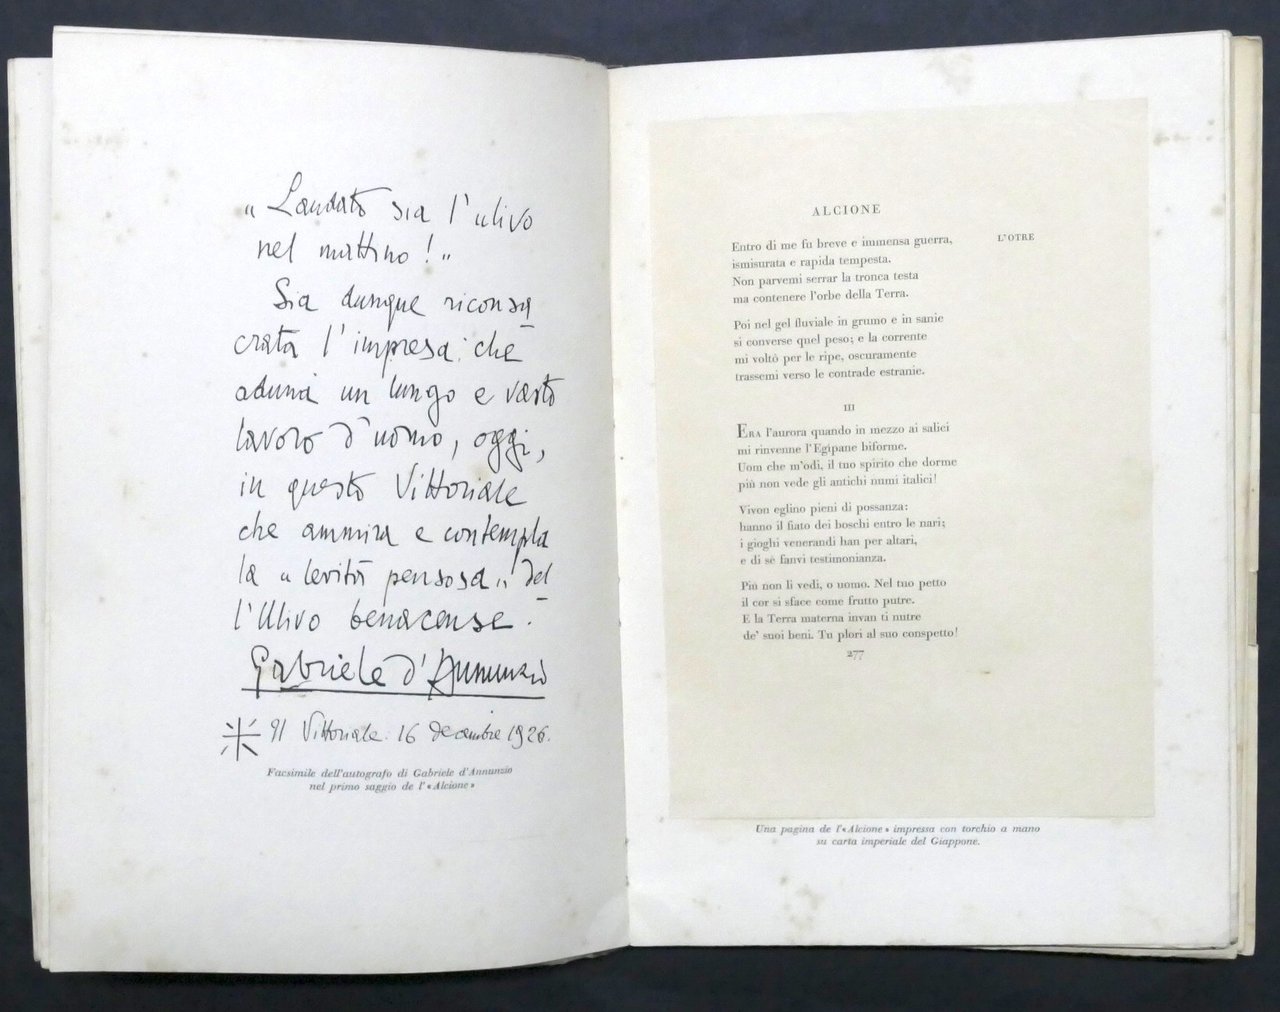 „ Laudato sia l'ulivo
nel mattino! „
Sia dunque riconsa
crata l'impresa: che
aduna un lungo e vasto
lavoro d'uomo, oggi,
in questo Vittoriale
che ammira e contempla
la „ levità pensosa „ del
l'Ulivo benacense.
Gabriele d'Annunzio
Il Vittoriale. 16 decembre 1926.
Facsimile dell'autografo di Gabriele d'Annunzio
nel primo saggio de l'«Alcione»
ALCIONE
L'OTRE
Entro di me fu breve e immensa guerra,
ismisurata e rapida tempesta.
Non parvemi serrar la tronca testa
ma contenere l'orbe della Terra.
Poi nel gel fluviale in grumo e in sanie
si converse quel peso; e la corrente
mi voltò per le ripe, oscuramente
trassemi verso le contrade estranie.
III
ERA l'aurora quando in mezzo ai salici
mi rinvenne l'Egipane biforme.
Uom che m'odi, il tuo spirito che dorme
più non vede gli antichi numi italici!
Vivon eglino pieni di possanza:
hanno il fiato dei boschi entro le nari;
i gioghi venerandi han per altari,
e di sè fanvi testimonianza.
Più non li vedi, o uomo. Nel tuo petto
il cor si sface come frutto putre.
E la Terra materna invan ti nutre
de' suoi beni. Tu plori al suo conspetto!
277
Una pagina de l'«Alcione» impressa con torchio a mano
su carta imperiale del Giappone.